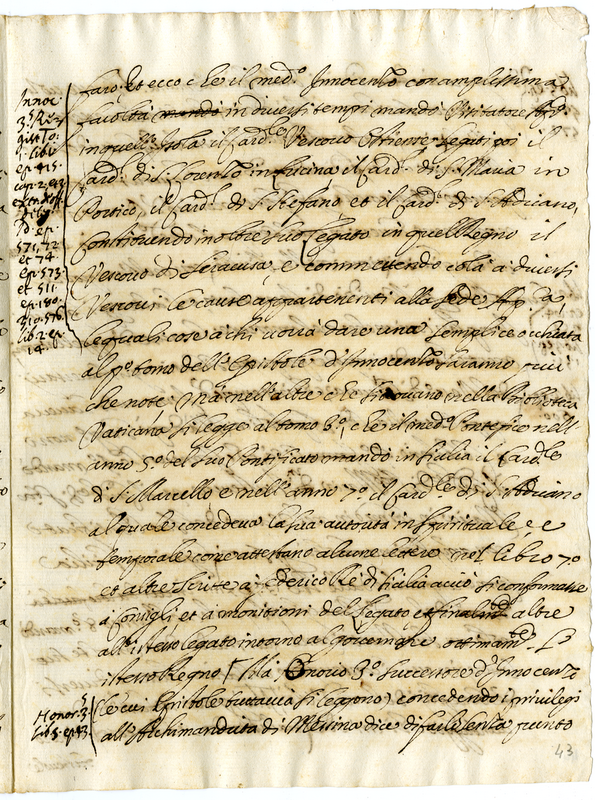 faro. Et ecco che il med.º Innocentio con amplissima
facoltà mandò in diversi tempi mandò Visitatore
in quell'Isola il Card.le Vescovo Ostiense Legati poi il
Card. di S. Lorenzo in Lucina il Card. di S. Maria in
Portico, il Card. di S. Stefano et il Card. di S. Adriano,
constituendo inoltre suo Legato in quel Regno il
Vescovo di Siracusa, e commettendo colà a diversi
Vescovi le cause appartenenti alla Sede
le quali cose a chi vorrà dare una semplice occhiata
al p.º tomo dell'Epistole d'Innocentio saranno più
che note. Ma nell'altre che si trovano nella Biblioteca
Vaticana si legge al tomo 3º, che il med.º Pontefice nell'
anno 5º del suo Pontificato mandò in Sicilia il Card.le
di S. Marcello e nell'anno 7º il Card.le di S. Adriano
al quale concedeva la sua autorità in spirituale, e
temporale come attestano alcune lettere nel libro 7º
et altre scritte a Federico Rè di Sicilia acciò si conformasse
a consigli et a monitioni del Legato et finalm.te altre
all'istesso legato intorno al governare ottimam.te
istesso Regno. Honorio 3º successore d'Innocentio
(le cui Epistole tuttavia si leggono) concedendo i privilegi
all'Archimandrita di Messina dice di farlo senza punto
Innoc
3º Re-
gist. To:
1. lib.
ep. 415.
cap. 2. et 3.
ep.
571, 72
et 74
ep. 573.
et 511.
ep. 180.
510. 576.
lib. 2. ep.
14.
Honor. 3.
lib. 5. ep. 43.
43